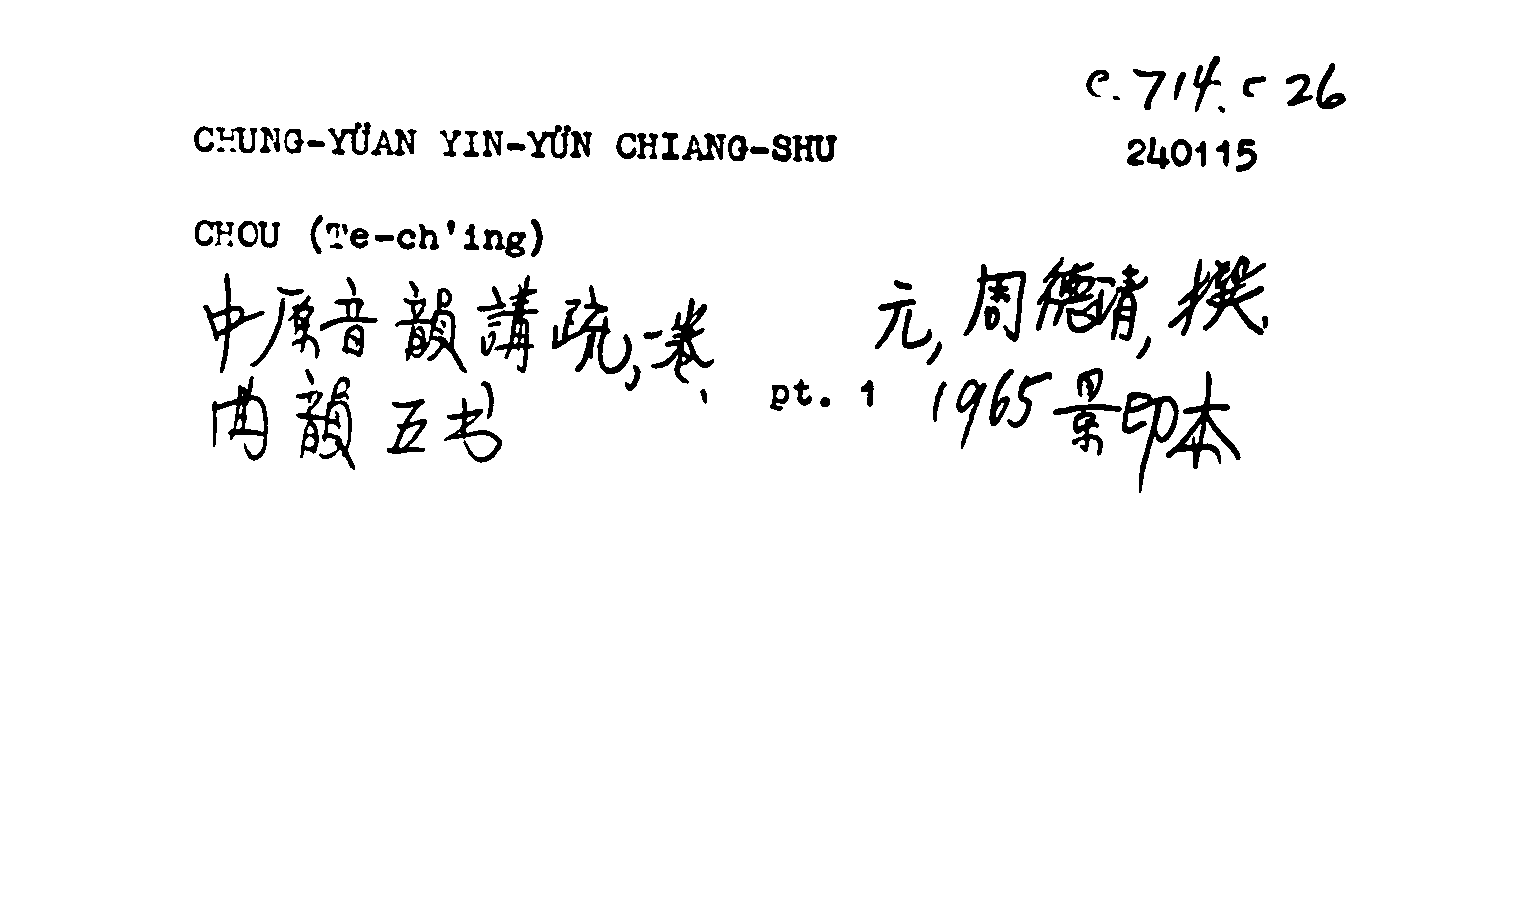 c.714.c 26
CHUNG-YÜAN YIN-YÜN CHIANG-SHU 240115
CHOU (Te-ch'ing)
中原音韻講疏,一卷、 元,周德清,撰.
曲韻五书 pt. 1 1965景印本